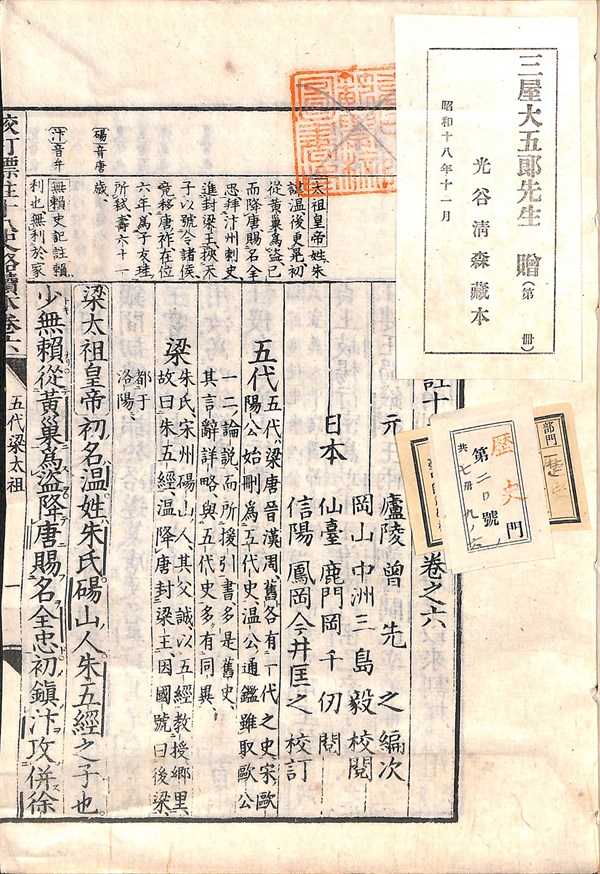 三屋大五郎先生 贈(第 冊)
光谷清森藏本
昭和十八年十一月
部門
歷史門
第二〇號
共七冊ノ六
註十
卷之六
元 廬陵 曾先之 編次
岡山 中洲 三島毅 校閱
日本 仙臺 鹿門 岡千仞 閱
信陽 鳳岡 今井匡之 校訂
五代
五代、梁唐晉漢周、舊各有一代之史、宋歐
陽公始刪爲五代史、温公通鑑雖取歐公
一二論説、而所援引書多是舊史、
其言辭詳略、與五代史多有同異、
梁
朱氏、宋州碭山人、其父誠以五經敎授鄉里
故曰朱五經、温降唐封梁王、因國號曰後梁
都于
洛陽、
梁太祖皇帝初名温姓朱氏碭山人朱五經之子也
少無賴從黃巢爲盜降唐賜名全忠初鎭汴攻併徐
太祖皇帝姓朱
諱温後更晃初
從黃巢爲盜已
而降唐賜名全
忠拜汴州刺史
進封梁王挾天
子以號令諸侯
竟移唐祚在位
六年爲子友珪
所弒壽六十一
歲、
碭音唐
汴音弁
無賴史記註賴
利也無利於家
校訂標註十八史略讀本卷六
五代梁太祖
一